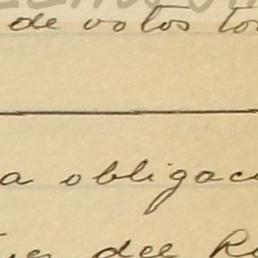 de votos to
a obligac
del R